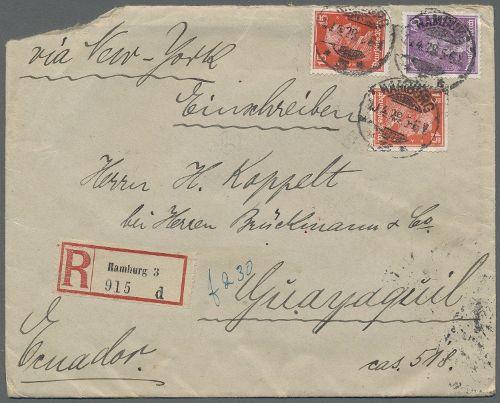 via New-York
Einschreiben
15
15
HAMBURG
HAMBURG
Herrn H. Koppelt
bei Herren Brückmann & Co.
R
Hamburg 3
915 d
Guayaquil
Ecuador.
cas. 518.